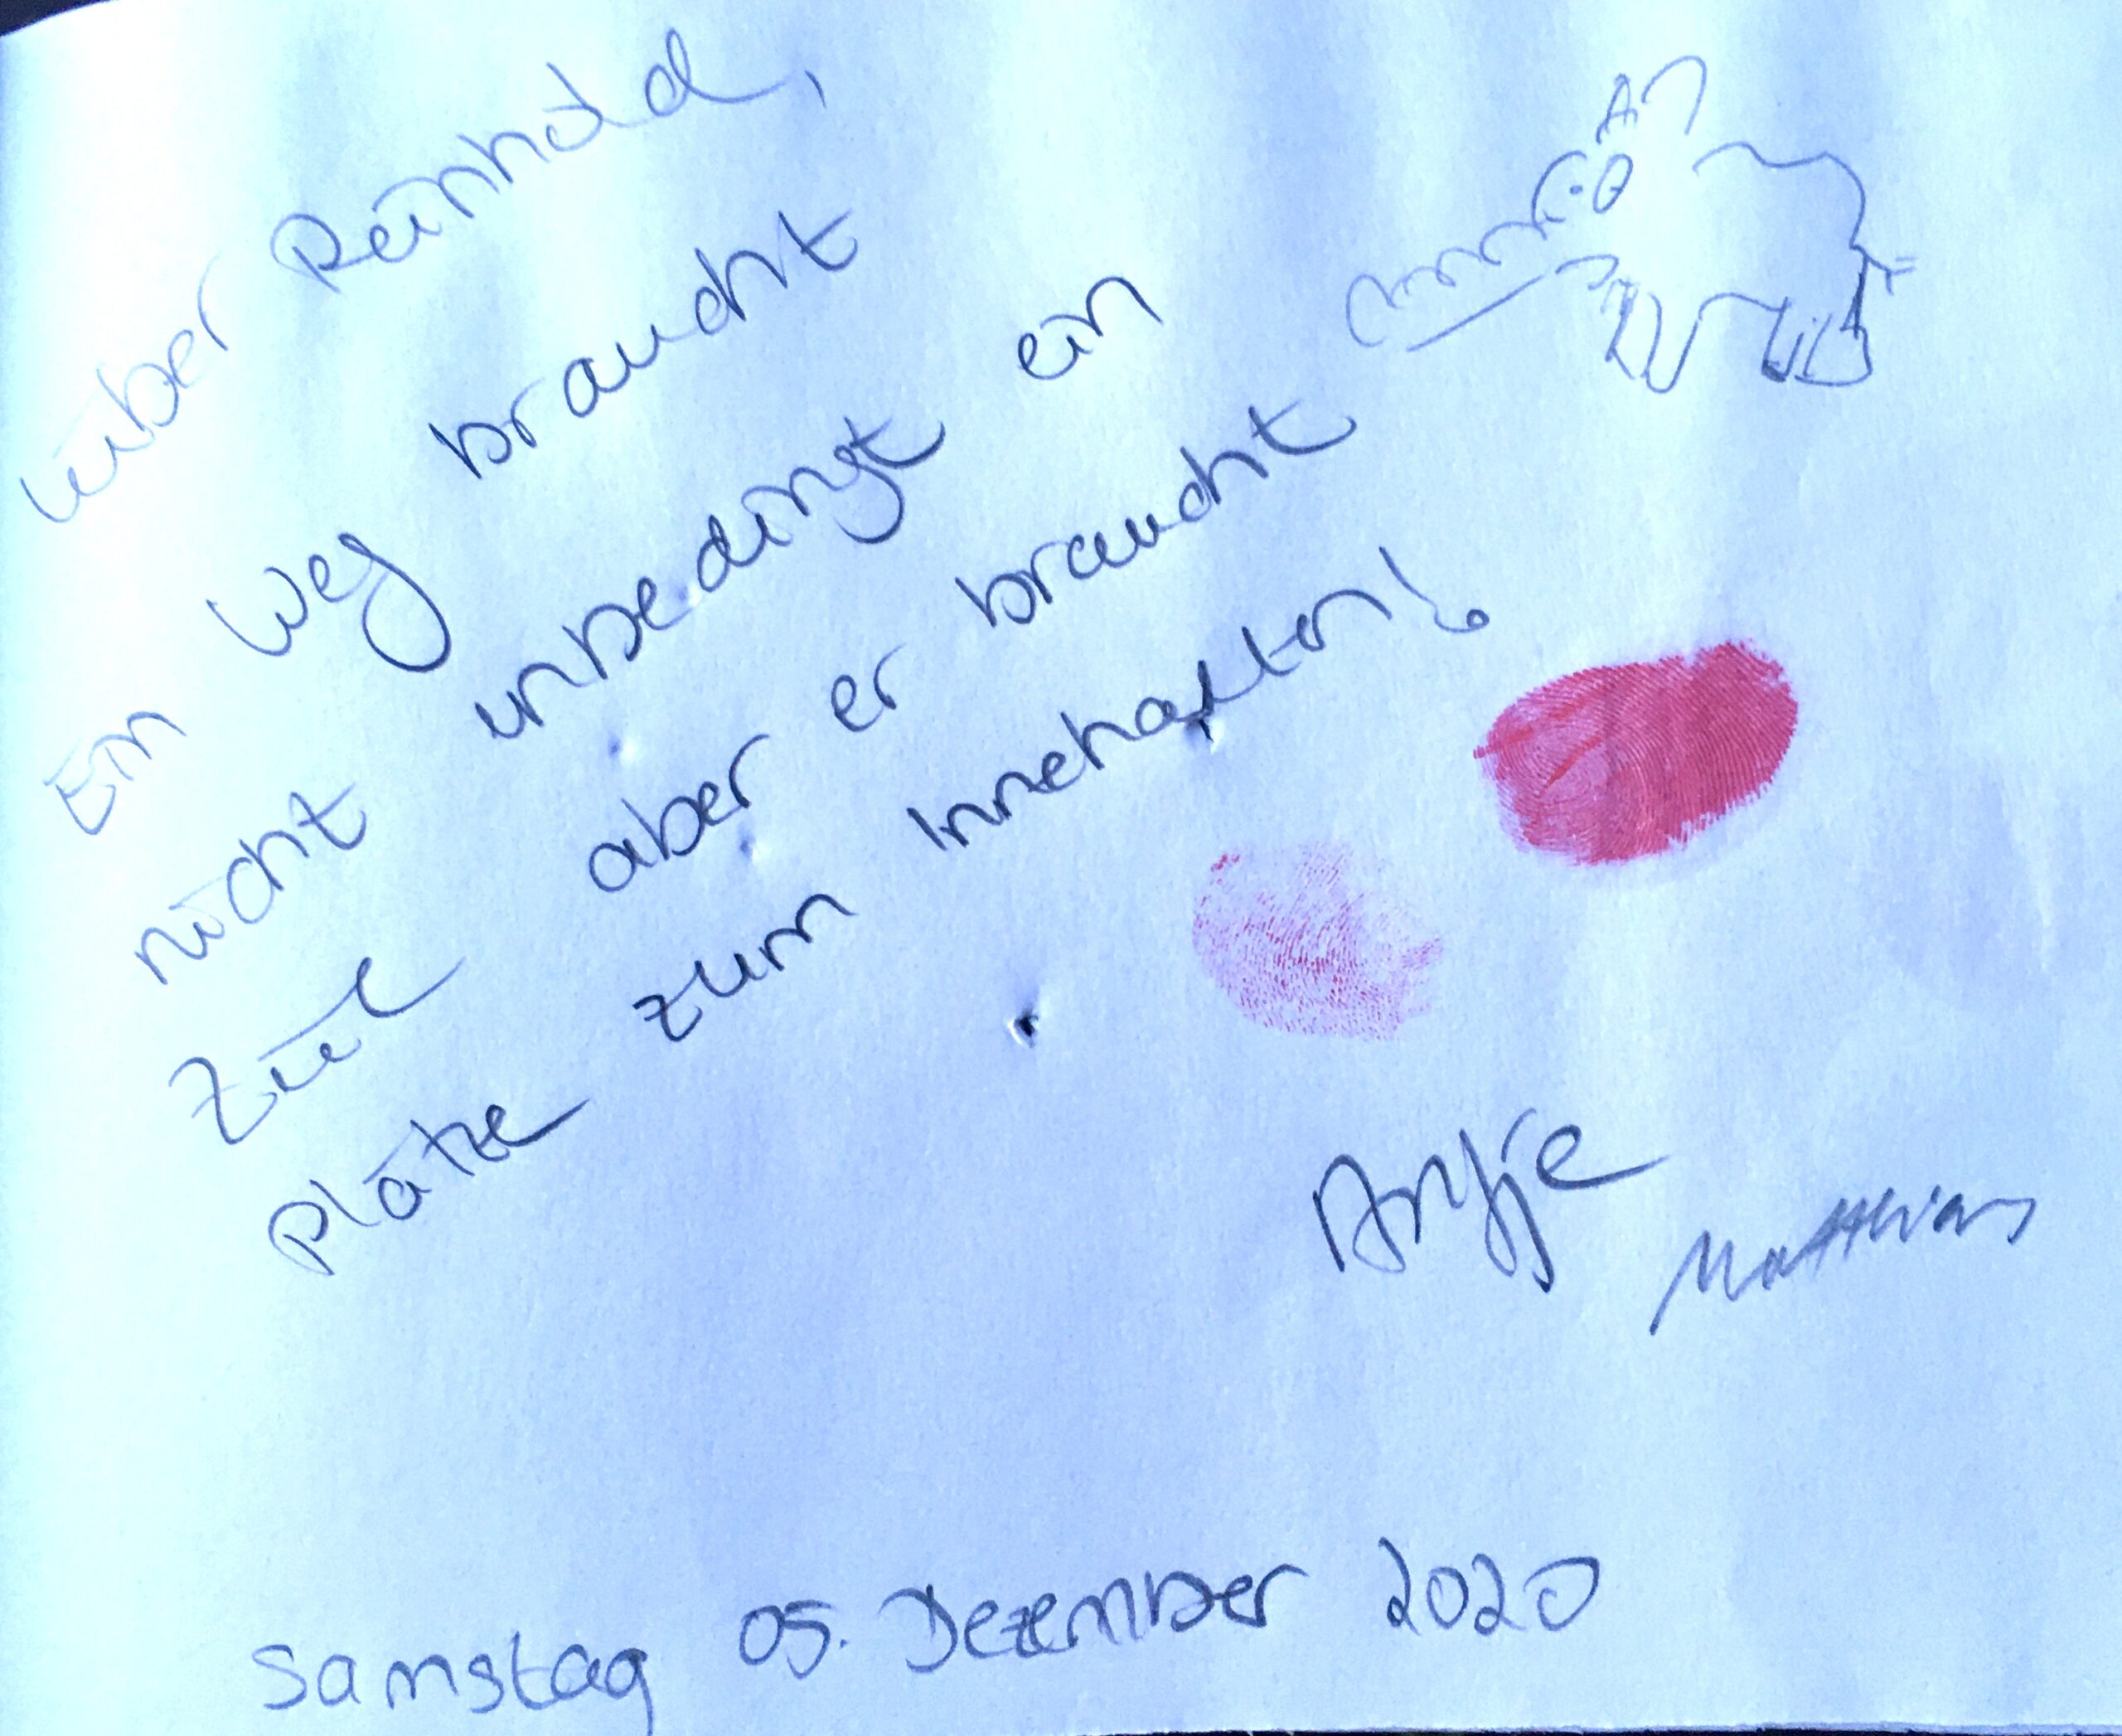 Lieber Reinhold,
Ein Weg braucht
nicht unbedingt ein
Ziel aber er braucht
Plätze zum Innehalten!
Antje
Matthias
Samstag 05. Dezember 2020